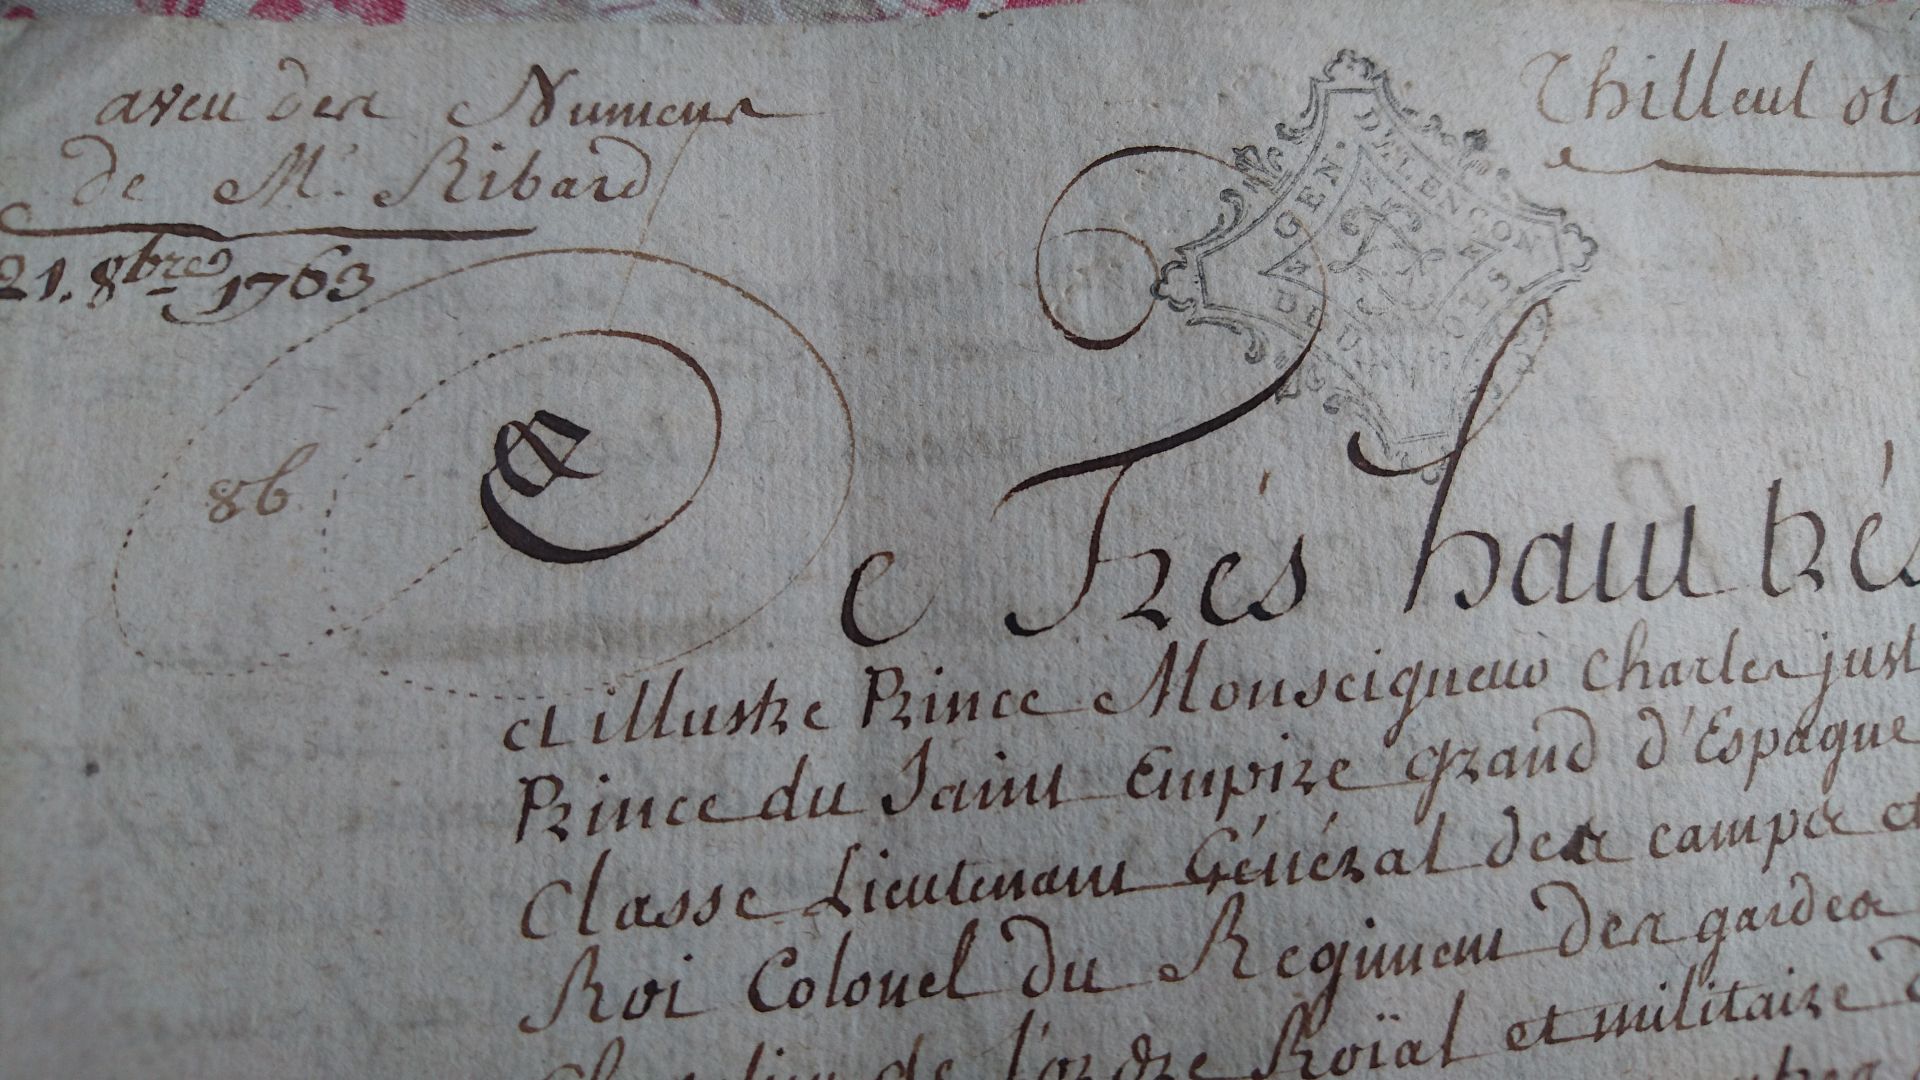 aveu des Numeur
de Mr. Ribard
21. 8bre 1763
Thilleul
GEN. D'ALENCON
DEUX SOLS
86
De Trés haut trés
et illustre Prince Monseigneur Charles just
Prince du Saint Empire grand d'Espagne
Classe Lieutenant Général des camps et
Roi Colonel du Regiment des gardes
de l'ordre Roïal et militaire